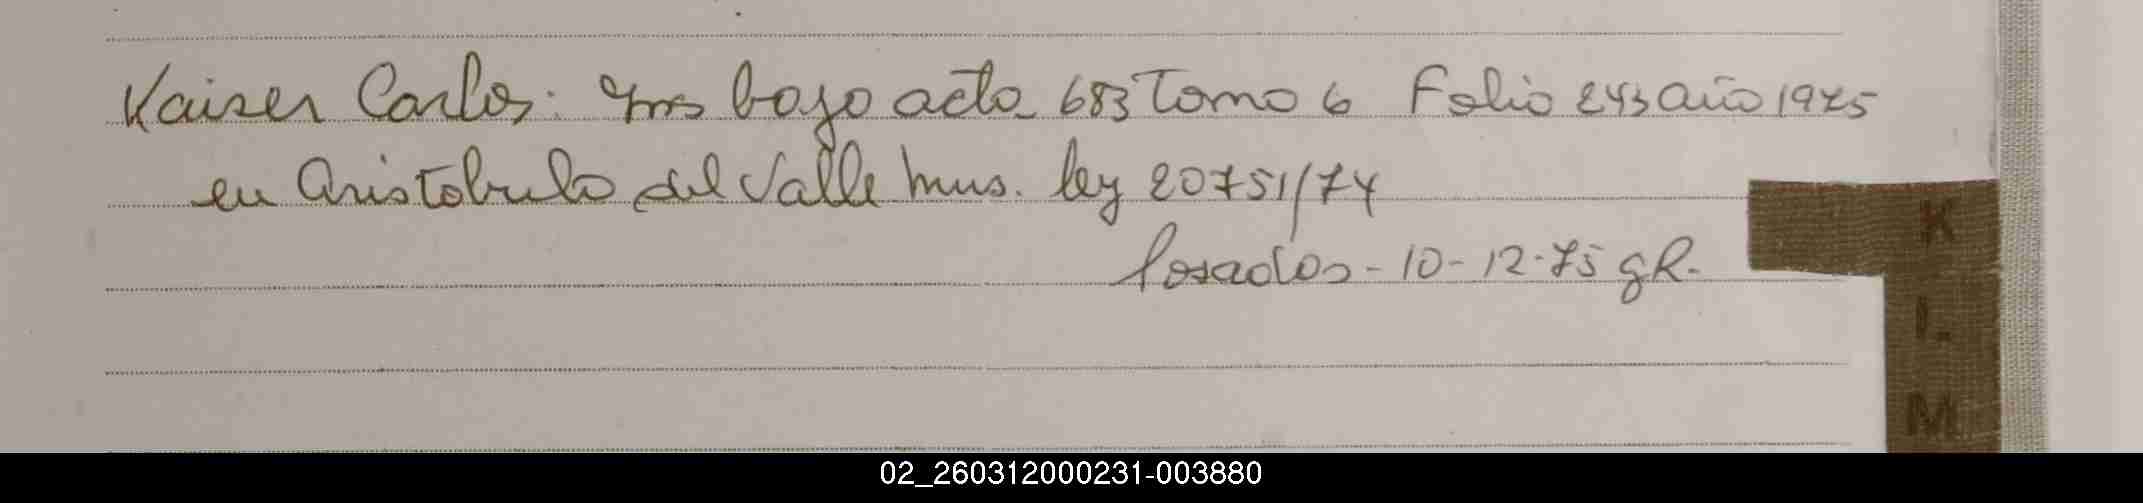 Kaiser Carlos: Ins bajo acta 683 Tomo 6 Folio 243 año 1975
en Aristobulo del Valle Mns. ley 20751/74
Posadas - 10-12-75 gR.
K
L
M
02_260312000231-003880